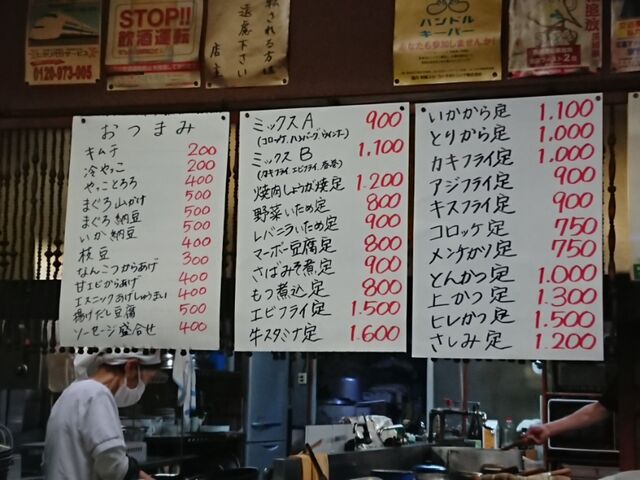 0120-973-005
STOP!!
飲酒運転
転される方は
遠慮下さい
店主
ハンドル
キーパー
あなたも参加しませんか!
おつまみ
キムチ 200
冷やっこ 200
やっことろろ 400
まぐろ山かけ 500
まぐろ納豆 500
いか納豆 500
枝豆 400
なんこつからあげ 300
甘エビからあげ 400
エスニックあげしゅうまい 400
揚げだし豆腐 500
ソーセージ盛合せ 400
ミックスA 900
(コロッケ、ハンバーグ、ウインナー)
ミックスB 1,100
(カキフライ、エビフライ、春巻)
焼肉しょうが焼定 1,200
野菜いため定 800
レバニラいため定 900
マーボー豆腐定 800
さばみそ煮定 900
もつ煮込定 800
エビフライ定 1,500
牛スタミナ定 1,600
いかから定 1,100
とりから定 1,000
カキフライ定 1,000
アジフライ定 900
キスフライ定 900
コロッケ定 750
メンチカツ定 750
とんかつ定 1,000
上かつ定 1,300
ヒレかつ定 1,500
さしみ定 1,200